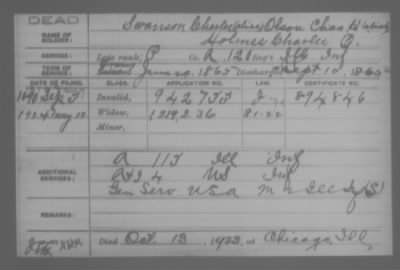 DEAD
NAME OF SOLDIER: Swanson Charles (alias) Olson Chas H (alias)
Holmes Charles
SERVICE: Late rank, P Co. A, 120 Reg't Ill Inf
TERM OF SERVICE: 1865 Discharged Sept 10, 1865
DATE OF FILING. CLASS. APPLICATION NO. LAW. CERTIFICATE NO.
1890 Invalid, 942733 J 894846
1924 Widow, 1219236
Minor,
ADDITIONAL SERVICES: A 113 Ill Inf
4 US Inf
Gen Serv USA
REMARKS:
Died Oct. 13, 1923, at Chicago, Ill.